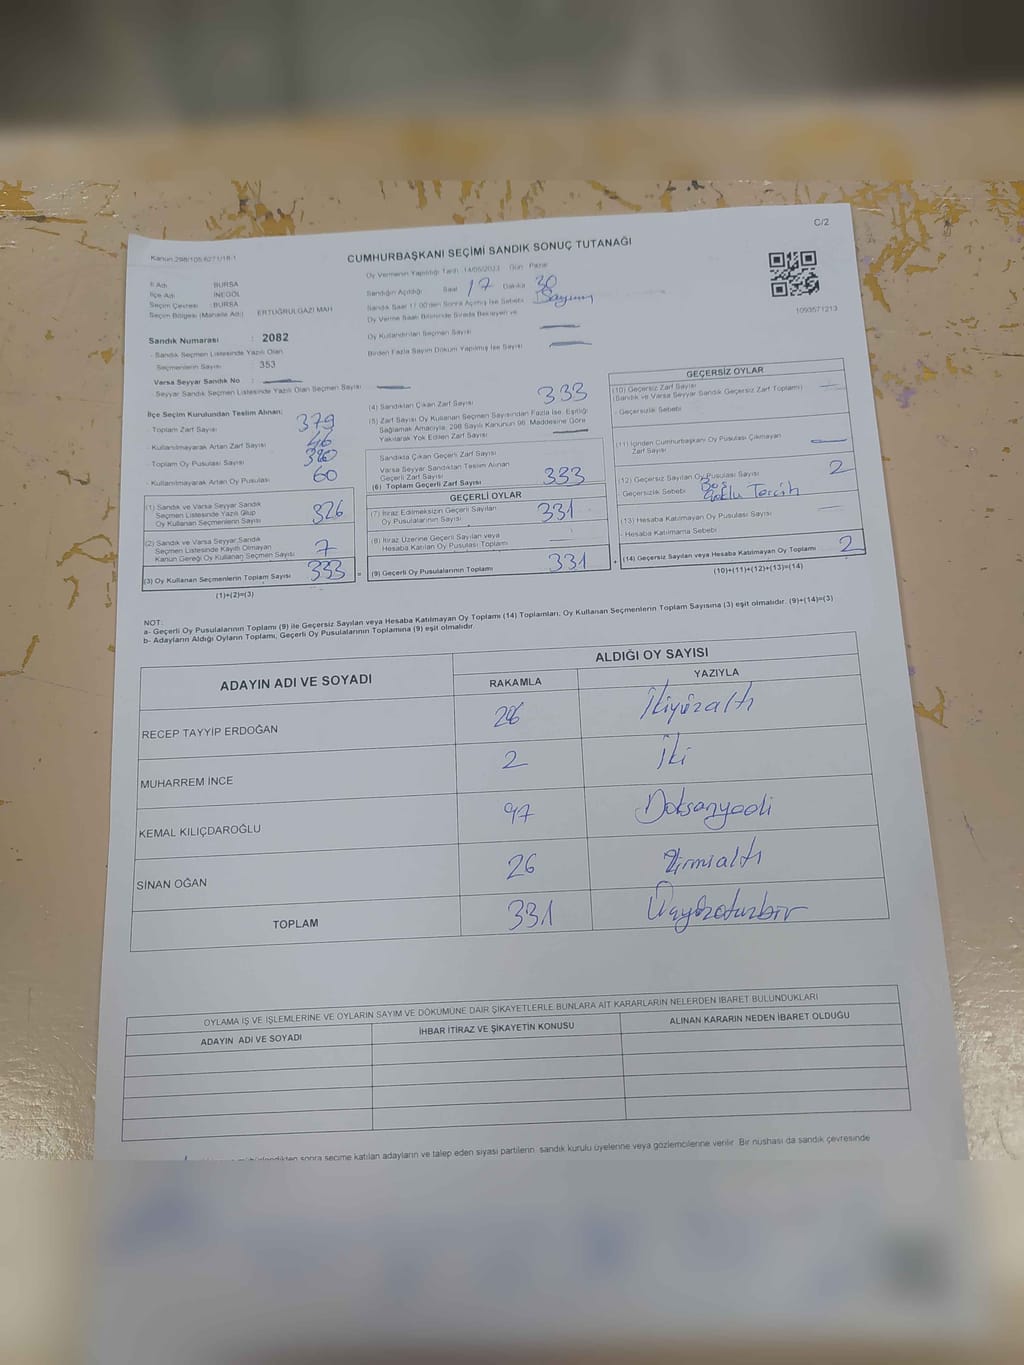 C/2
Kanun 298/105 6271/18-1
CUMHURBAŞKANI SEÇİMİ SANDIK SONUÇ TUTANAĞI
İl Adı : BURSA
İlçe Adı : İNEGÖL
Seçim Çevresi : BURSA
Seçim Bölgesi (Mahalle Adı) : ERTUĞRULGAZİ MAH
Oy Vermenin Yapıldığı Tarih 14/05/2023 Gün Pazar
Sandığın Açıldığı Saat 17 Dakika 30
Sandık Saat 17 00'den Sonra Açılmış İse Sebebi
Oy Verme Saati Bitiminde Sırada Bekleyen ve
Oy Kullandırılan Seçmen Sayısı
Birden Fazla Sayım Döküm Yapılmış İse Sayısı
1093571213
Sandık Numarası : 2082
- Sandık Seçmen Listesinde Yazılı Olan
Seçmenlerin Sayısı : 353
Varsa Seyyar Sandık No
Seyyar Sandık Seçmen Listesinde Yazılı Olan Seçmen Sayısı
İlçe Seçim Kurulundan Teslim Alınan;
- Toplam Zarf Sayısı 379
- Kullanılmayarak Artan Zarf Sayısı 46
- Toplam Oy Pusulası Sayısı
- Kullanılmayarak Artan Oy Pusulası 60
(1) Sandık ve Varsa Seyyar Sandık
Seçmen Listesinde Yazılı Olup
Oy Kullanan Seçmenlerin Sayısı 326
(2) Sandık ve Varsa Seyyar Sandık
Seçmen Listesinde Kayıtlı Olmayan
Kanun Gereği Oy Kullanan Seçmen Sayısı 7
(3) Oy Kullanan Seçmenlerin Toplam Sayısı 333
(1)+(2)=(3)
(4) Sandıktan Çıkan Zarf Sayısı 333
(5) Zarf Sayısı Oy Kullanan Seçmen Sayısından Fazla İse, Eşitliği
Sağlamak Amacıyla, 298 Sayılı Kanunun 98. Maddesine Göre
Yakılarak Yok Edilen Zarf Sayısı
Sandıkta Çıkan Geçerli Zarf Sayısı
Varsa Seyyar Sandıktan Teslim Alınan
Geçerli Zarf Sayısı
(6) Toplam Geçerli Zarf Sayısı 333
GEÇERLİ OYLAR
(7) İtiraz Edilmeksizin Geçerli Sayılan
Oy Pusulalarının Sayısı 331
(8) İtiraz Üzerine Geçerli Sayılan veya
Hesaba Katılan Oy Pusulası Toplamı
(9) Geçerli Oy Pusulalarının Toplamı 331
GEÇERSİZ OYLAR
(10) Geçersiz Zarf Sayısı
(Sandık ve Varsa Seyyar Sandık Geçersiz Zarf Toplamı)
- Geçersizlik Sebebi
(11) İçinden Cumhurbaşkanı Oy Pusulası Çıkmayan
Zarf Sayısı
(12) Geçersiz Sayılan Oy Pusulası Sayısı 2
- Geçersizlik Sebebi Boş Çoklu Tercih
(13) Hesaba Katılmayan Oy Pusulası Sayısı
- Hesaba Katılmama Sebebi
(14) Geçersiz Sayılan veya Hesaba Katılmayan Oy Toplamı 2
(10)+(11)+(12)+(13)=(14)
NOT:
a- Geçerli Oy Pusulalarının Toplamı (9) ile Geçersiz Sayılan veya Hesaba Katılmayan Oy Toplamı (14) Toplamları, Oy Kullanan Seçmenlerin Toplam Sayısına (3) eşit olmalıdır. (9)+(14)=(3)
b- Adayların Aldığı Oyların Toplamı, Geçerli Oy Pusulalarının Toplamına (9) eşit olmalıdır.
ADAYIN ADI VE SOYADI
ALDIĞI OY SAYISI
RAKAMLA YAZIYLA
RECEP TAYYİP ERDOĞAN 206 İkiyüzaltı
MUHARREM İNCE 2 İki
KEMAL KILIÇDAROĞLU 97 Doksanyedi
SİNAN OĞAN 26 Yirmialtı
TOPLAM 331 Üçyüzotuzbir
OYLAMA İŞ VE İŞLEMLERİNE VE OYLARIN SAYIM VE DÖKÜMÜNE DAİR ŞİKAYETLERLE BUNLARA AİT KARARLARIN NELERDEN İBARET BULUNDUKLARI
ADAYIN ADI VE SOYADI İHBAR İTİRAZ VE ŞİKAYETİN KONUSU ALINAN KARARIN NEDEN İBARET OLDUĞU
sonra seçime katılan adayların ve talep eden siyasi partilerin, sandık kurulu üyelerine veya gözlemcilerine verilir. Bir nüshası da sandık çevresinde